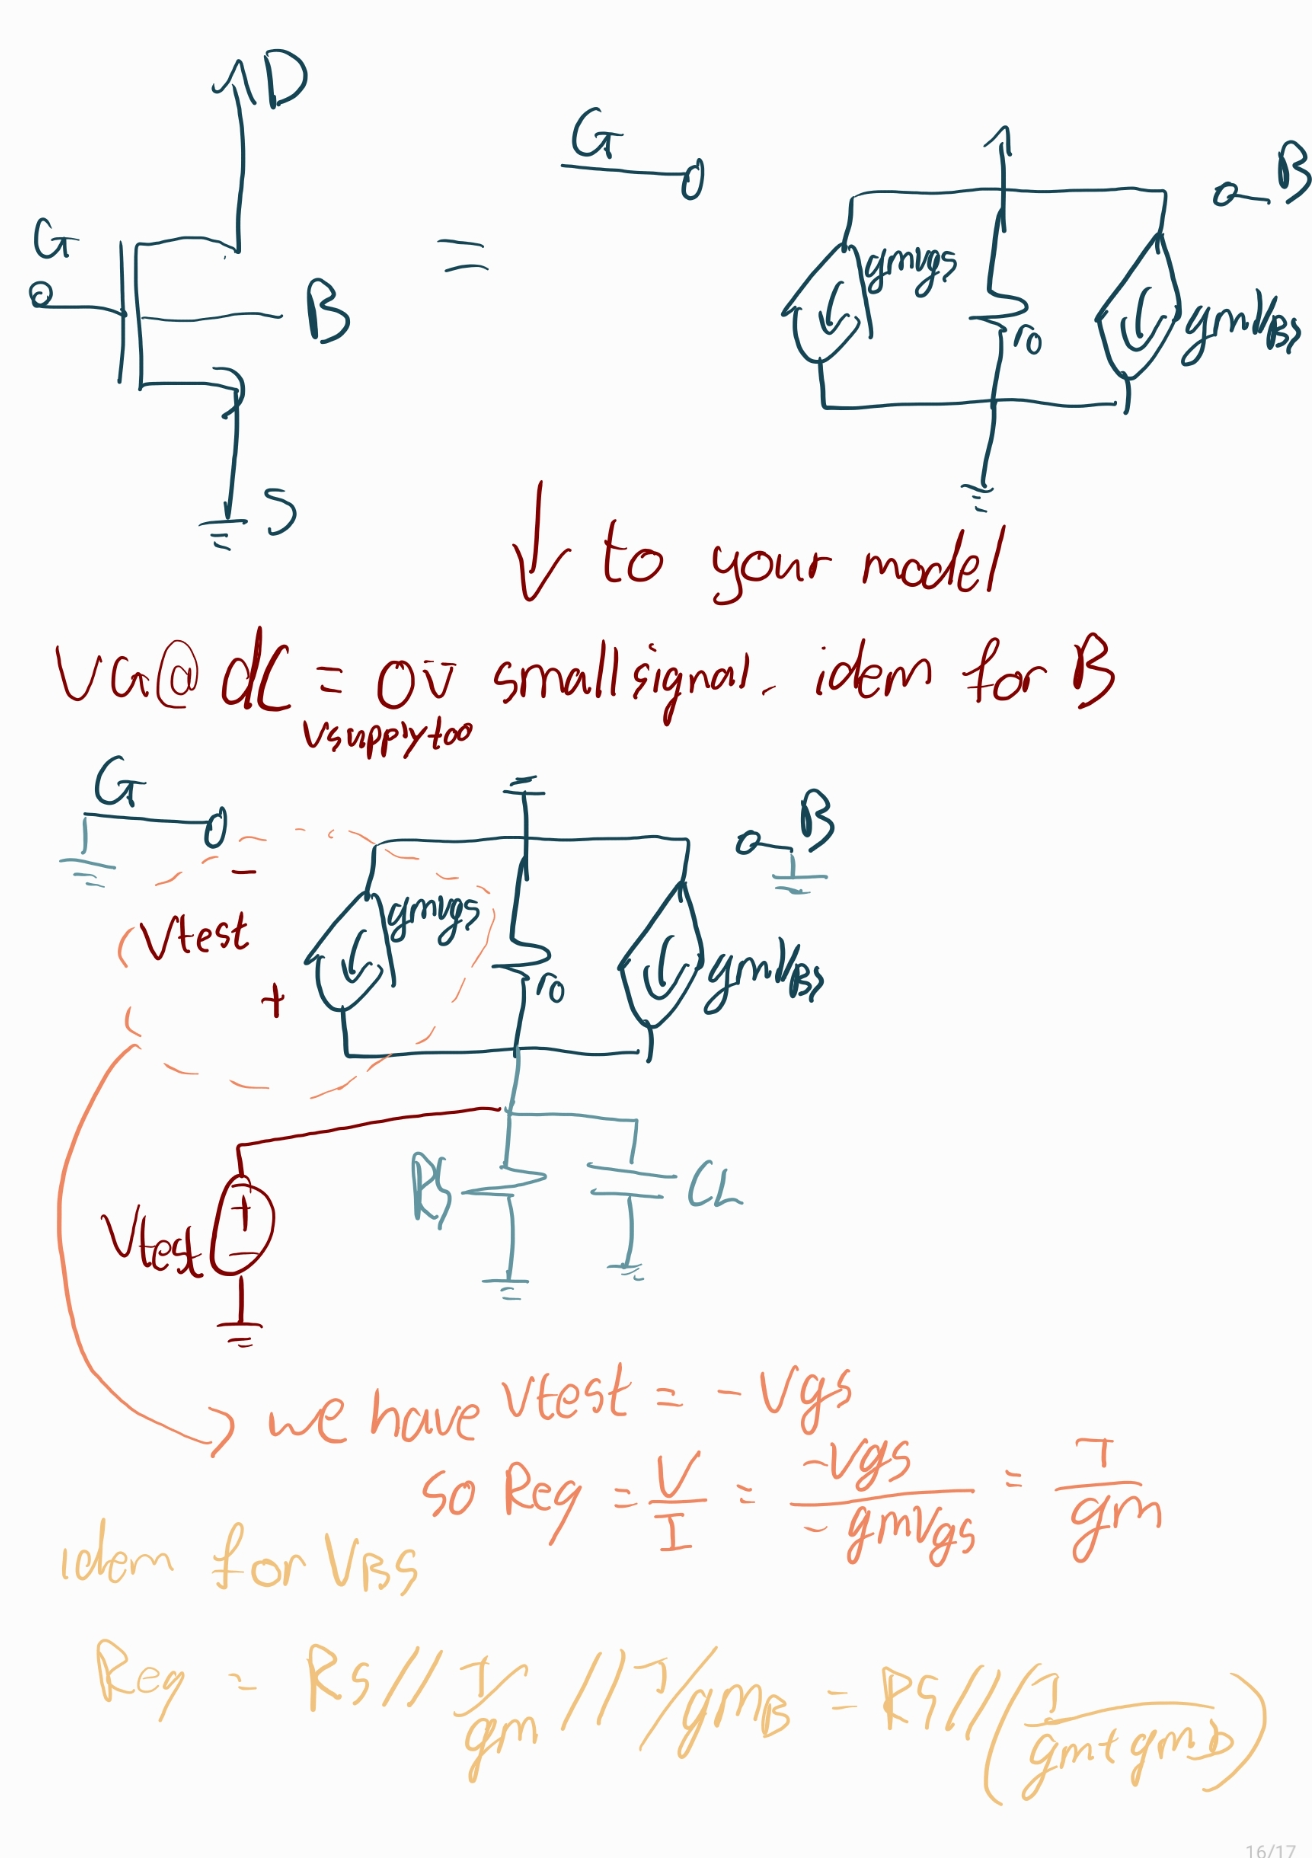 D
G
B
S
=
G
B
gmvgs
ro
gmVBS
↓ to your model
VG@dC = 0v smallsignal. idem for B
Vsupply too
G
B
-
Vtest
+
gmvgs
ro
gmVBS
RS
CL
Vtest
+
-
→ we have Vtest = -Vgs
so Req = V/I = -Vgs/-gmVgs = 1/gm
idem for VBS
Req = RS // 1/gm // 1/gmB = RS // (1/gm+gmb)
16/17